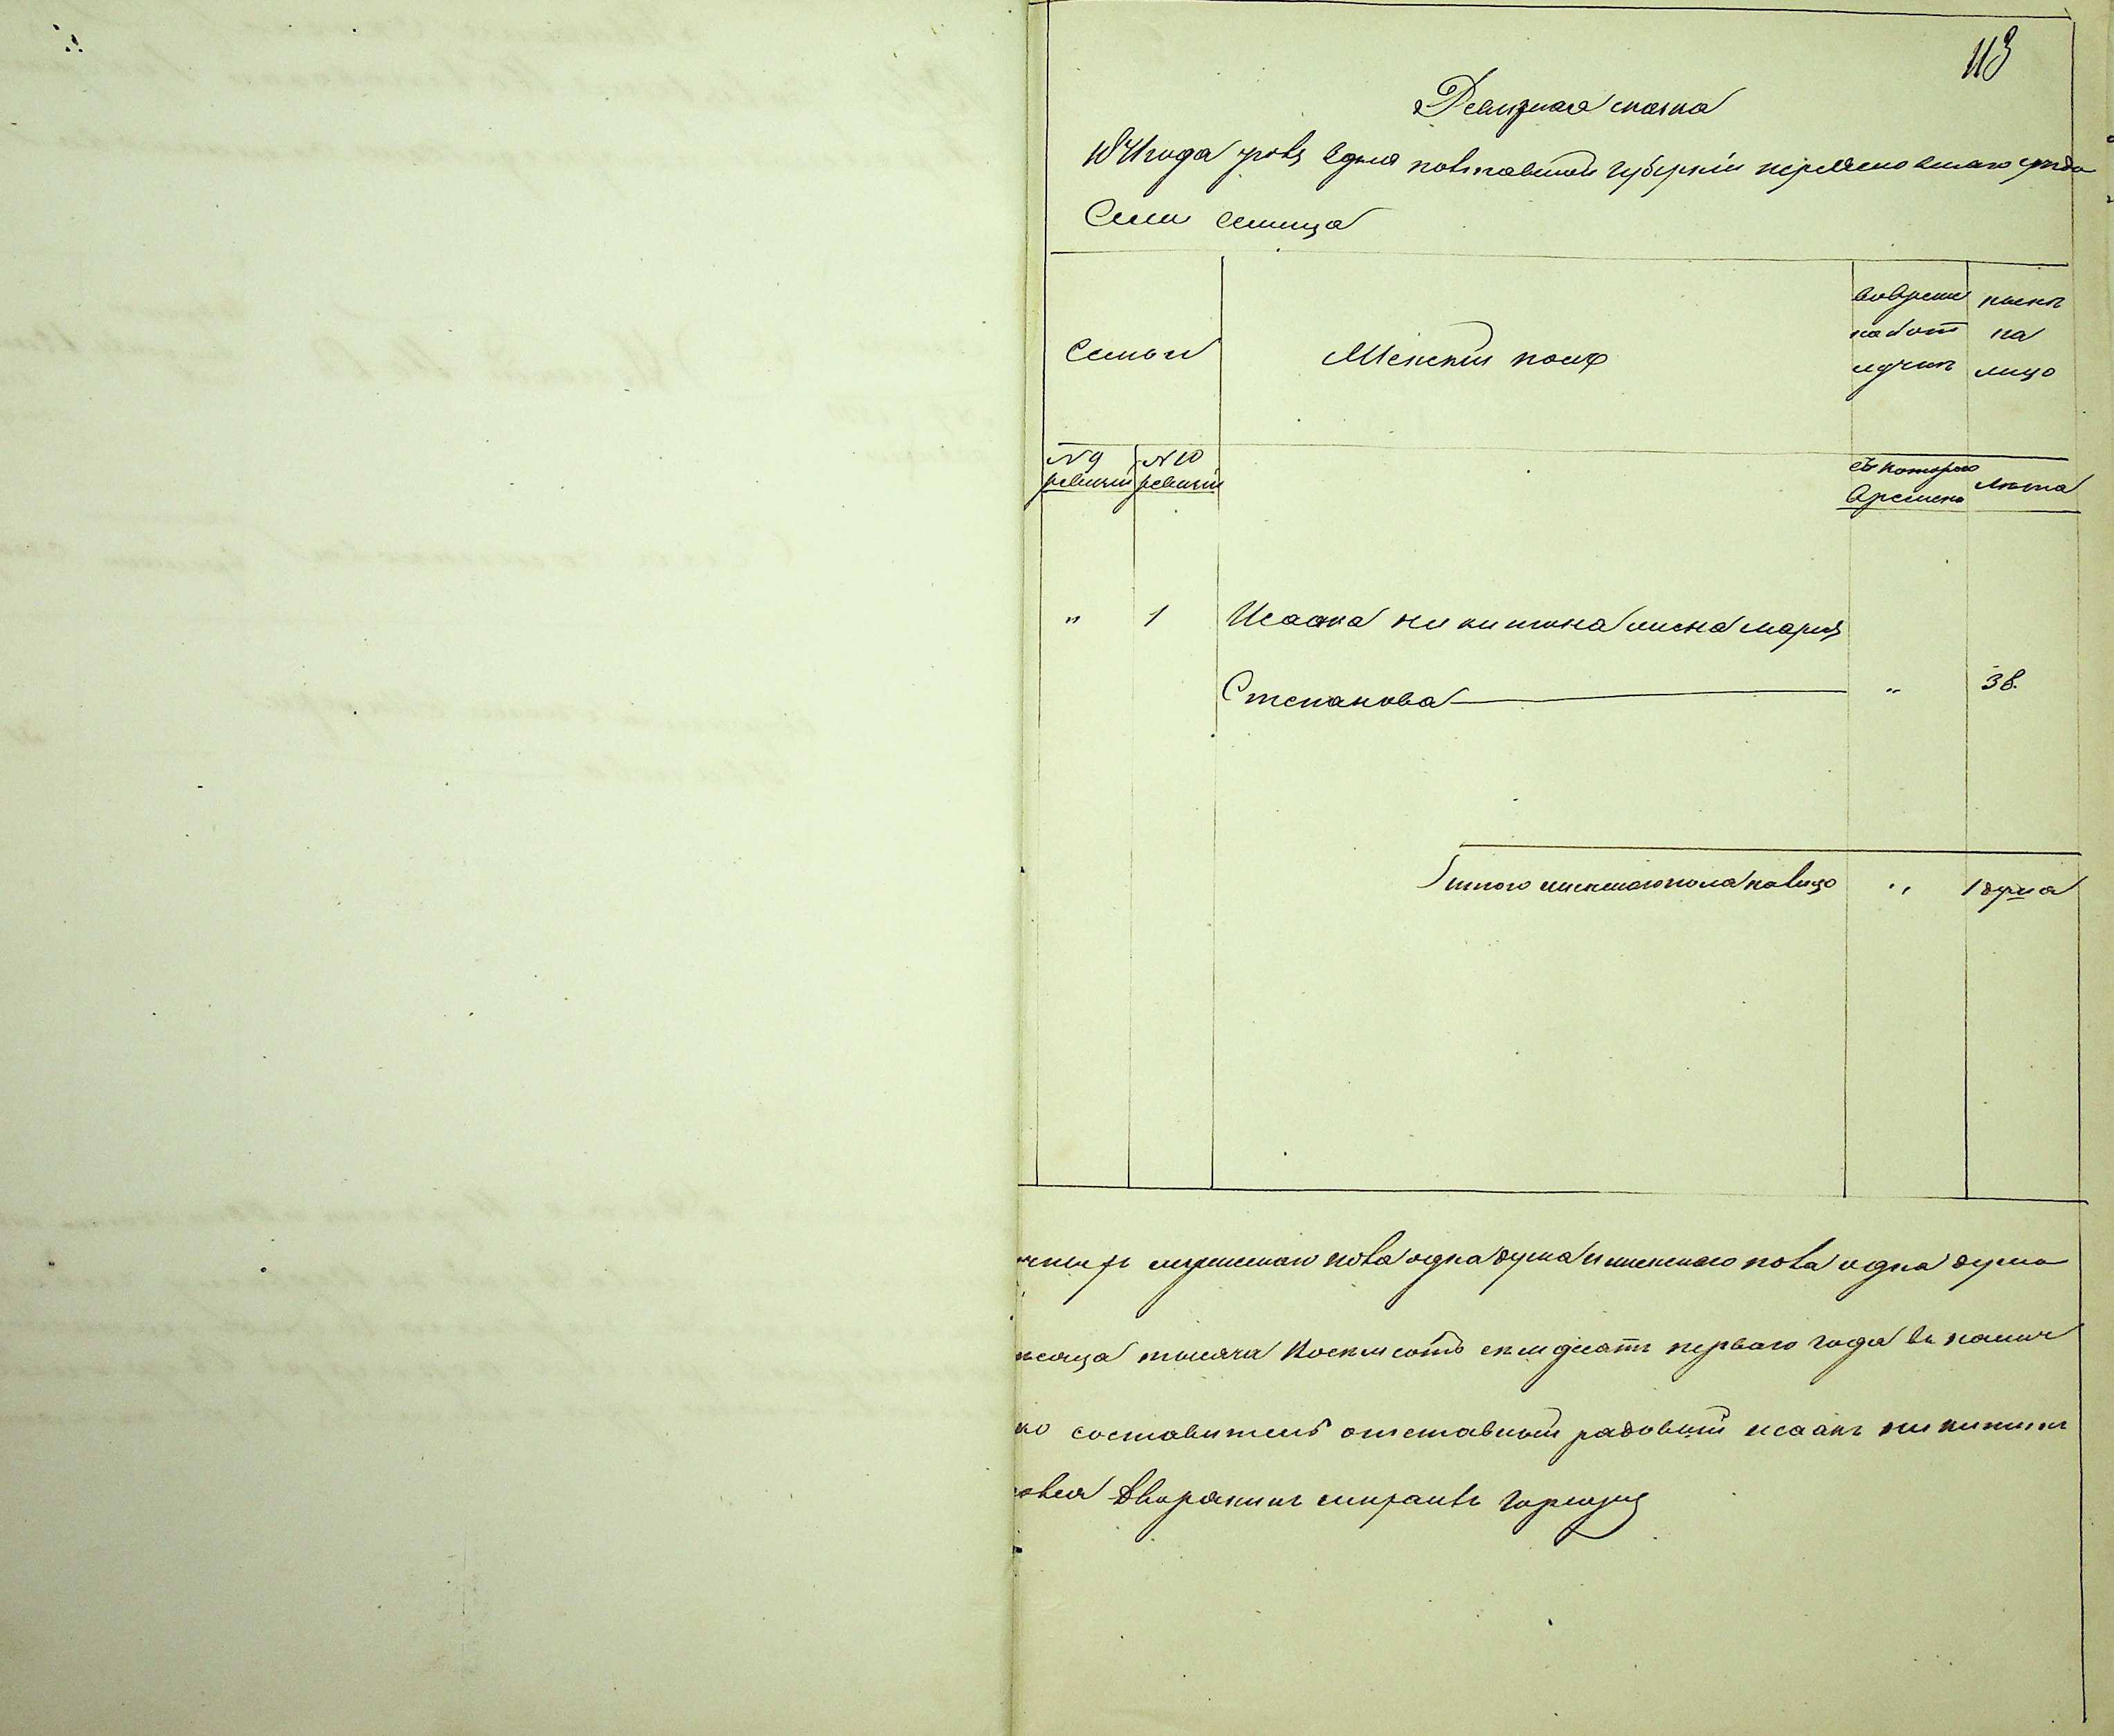 113
Ревизкая скаска
1871 года дня полтавской губернии переяславскаго уезда
Села
Семьи
Женскій полъ
вовреме
ной от
лучки
ныне
на
лицо
№ 9 ревизіи
№ 10 ревизіи
съ котораго времени
лета
" 1 Исаака никитина жена мария
Степанова " 38.
Итого женскаго пола налицо " 1 душа
мужескаго пола одна душа и женскаго пола одна душа
месяца тысяча восемсотъ семдесятъ перваго года
составителъ отставной рядовый исаакъ никитинъ
Дворянинъ